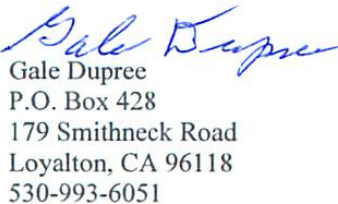 Gale Dupree
Gale Dupree
P.O. Box 428
179 Smithneck Road
Loyalton, CA 96118
530-993-6051